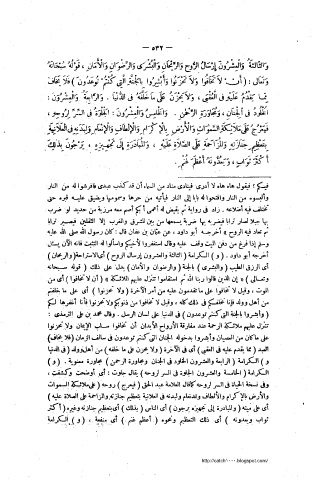 — ٥٣٢ —
وَالثَّالِثَةُ وَالْعِشْرُونَ إِرْسَالُ الرُّوحِ وَالرَّيْحَانِ وَالْبُشْرَى وَالرِّضْوَانِ وَالْأَمَانِ ، قَوْلُهُ سُبْحَانَهُ
وَتَعَالَى : ( أَنْ لَا تَخَافُوا وَلَا تَحْزَنُوا وَأَبْشِرُوا بِالْجَنَّةِ الَّتِي كُنْتُمْ تُوعَدُونَ ) فَلَا يَخَافُ
مِمَّا يَقْدُمُ عَلَيْهِ فِي الْعُقْبَى ، وَلَا يَحْزَنُ عَلَى مَا خَلَّفَهُ فِي الدُّنْيَا . وَالرَّابِعَةُ وَالْعِشْرُونَ :
الْخُلُودُ فِي الْجِنَانِ ، وَمُجَاوَرَةُ الرَّحْمَنِ . وَالْخَامِسَةُ وَالْعِشْرُونَ : الْجَلْوَةُ فِي السِّرِّ لِرُوحِهِ ،
فَيُعْرَجُ عَلَى مَلَائِكَةِ السَّمَوَاتِ وَالْأَرْضِ بِالْإِكْرَامِ وَالْإِلْطَافِ وَالْإِنْعَامِ وَلِبَدَنِهِ فِي الْعَلَانِيَةِ
بِتَعْظِيمِ جَنَازَتِهِ وَالْمُزَاحَمَةِ عَلَى الصَّلَاةِ عَلَيْهِ ، وَالْمُبَادَرَةِ إِلَى تَجْهِيزِهِ ، يَرْجُونَ بِذَلِكَ
أَكْثَرَ ثَوَابٍ ، وَيَعُدُّونَهُ أَعْظَمَ غُنْمٍ .
فيقول هاه هاه لا أدرى فينادى مناد من السماء أن قد كذب عبدى فافرشوا له من النار
وألبسوه من النار وافتحوا له بابا إلى النار فيأتيه من حرها وسمومها ويضيق عليه قبره حتى
تختلف فيه أضلاعه . زاد فى رواية ثم يقيض له أعمى أبكم أصم معه مرزبة من حديد لو ضرب
بها جبلا لصار ترابا فيضربه بها ضربة يسمعها من بين المشرق والمغرب إلا الثقلين فيصير ترابا
ثم تعاد فيه الروح » أخرجه أبو داود ، عن عثمان بن عفان قال : كان رسول الله صلى الله عليه
وسلم إذا فرغ من دفن الميت وقف عليه وقال استغفروا لأخيكم واسألوا له التثبيت فانه الآن يسئل
أخرجه أبو داود . ( و ) الكرامة ( الثالثة والعشرون إرسال الروح ) أى الاستراحة ( والريحان )
أى الرزق الطيب ( والبشرى ) بالجنة ( والرضوان والأمان ) يدل على ذلك ( قوله سبحانه
وتعالى ) « إن الذين قالوا ربنا الله ثم استقاموا تتنزل عليهم الملائكة » ( أن لا تخافوا ) أى من
الموت ، وقيل لا تخافوا على ما تقدمون عليه من أمر الآخرة ( ولا تحزنوا ) أى على ما خلفتم
من أهل وولد فإنا نخلفكم فى ذلك كله ، وقيل لا تخافوا من ذنوبكم ولا تحزنوا فأنا أغفرها لكم
( وأبشروا بالجنة التى كنتم توعدون ) فى الدنيا على لسان الرسل . وقال محمد بن على الترمذى :
تتنزل عليهم ملائكة الرحمة عند مفارقة الأرواح الأبدان أن لا تخافوا سلب الإيمان ولا تحزنوا
على ما كان من العصيان وأبشروا بدخول الجنان التى كنتم توعدون فى سالف الزمان ( فلا يخاف )
العبد ( مما يقدم عليه فى العقبى ) أى فى الآخرة ( ولا يحزن على ما خلفه ) من أهل وولد ( فى الدنيا
و ) الكرامة ( الرابعة والعشرون الخلود فى الجنان ومجاورة الرحمن ) مجاورة معنوية . ( و )
الكرامة ( الخامسة والعشرون الجلوة فى السر لروحه ) يقال جلوت : أى أوضحت وكشفت ،
وفى نسخة الحياة فى السر لروحه كما قال العلامة عبد الحق ( فيعرج ) روحه ( على ملائكة السموات
والأرض بالإكرام والألطاف والإنعام ولبدنه فى العلانية بتعظيم جنازته والمزاحمة على الصلاة عليه )
أى على ميته ( والمبادرة إلى تجهيزه يرجون ) أى الناس ( بذلك ) أى بتعظيم جنازته وغيره ( أكثر
ثواب ويعدونه ) أى ذلك التعظيم ونحوه ( أعظم غنم ) أى منفعة . ( و ) الكرامة